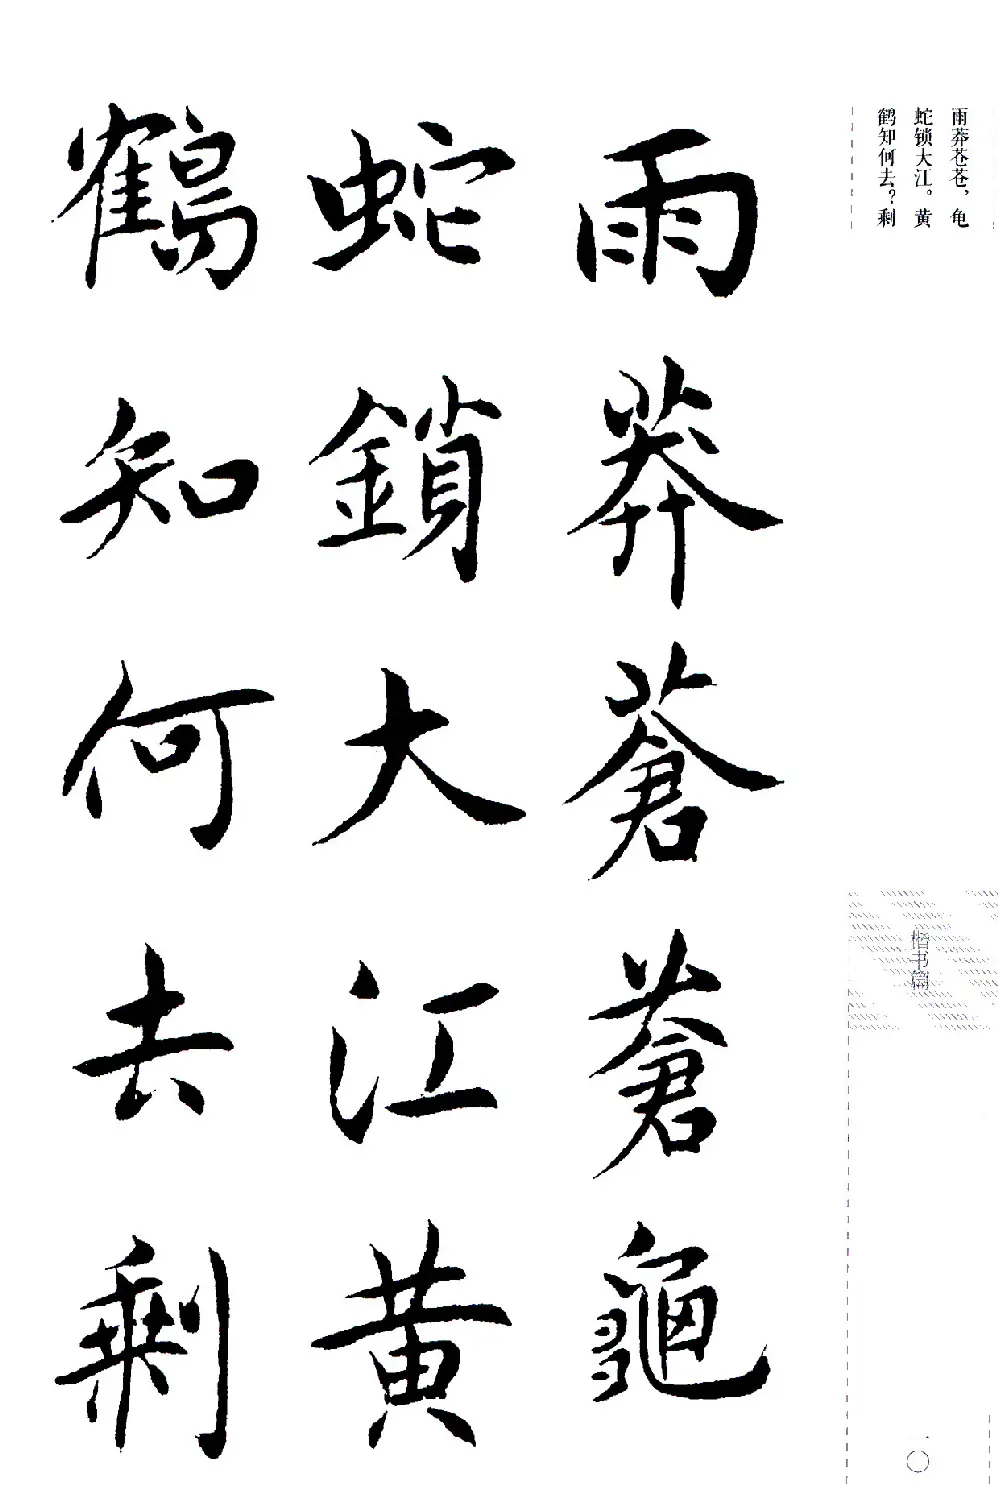 雨莽苍苍，龟
蛇锁大江。黄
鹤知何去？剩
雨莽蒼蒼龜
蛇鎖大江黄
鶴知何去剩
楷书篇
一〇